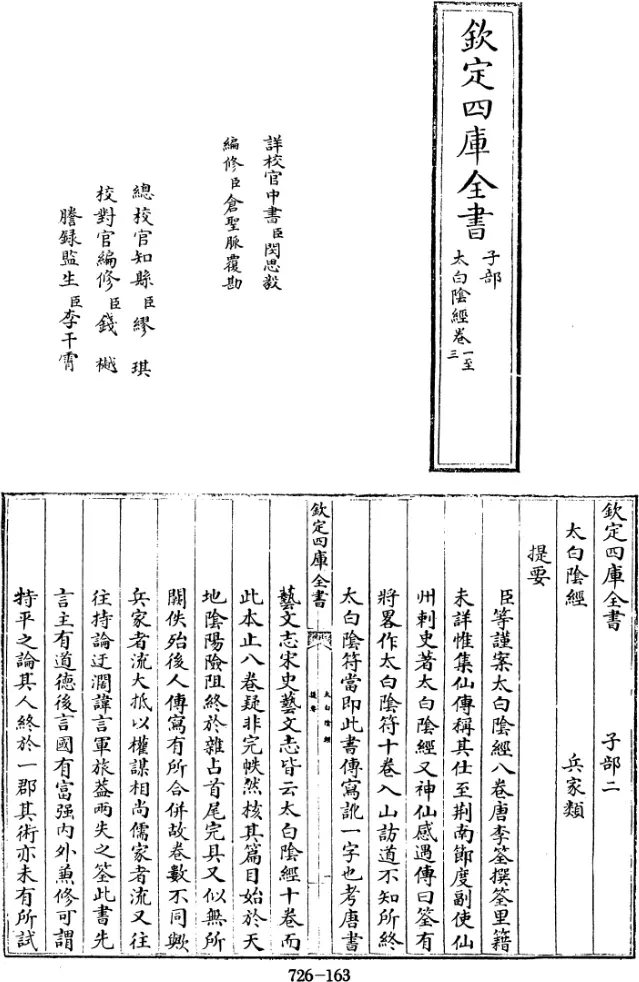 欽定四庫全書
子部
太白陰經卷一至三
詳校官中書臣閔思毅
編修臣倉聖脈覆勘
總校官知縣臣繆琪
校對官編修臣錢樾
謄錄監生臣李干霄
欽定四庫全書 子部二
太白陰經 兵家類
提要
臣等謹案太白陰經八卷唐李筌撰筌里籍
未詳惟集仙傳稱其仕至荆南節度副使仙
州刺史著太白陰經又神仙感遇傳曰筌有
將畧作太白陰符十卷入山訪道不知所終
太白陰符當即此書傳寫訛一字也考唐書
欽定四庫全書
太白陰經
提要
一
藝文志宋史藝文志皆云太白陰經十卷而
此本止八卷疑非完帙然核其篇目始於天
地陰陽險阻終於雜占首尾完具又似無所
闕佚殆後人傳寫有所合併故卷數不同歟
兵家者流大抵以權謀相尚儒家者流又往
往持論迂濶諱言軍旅葢兩失之筌此書先
言主有道德後言國有富强内外兼修可謂
持平之論其人終於一郡其術亦未有所試
726-163